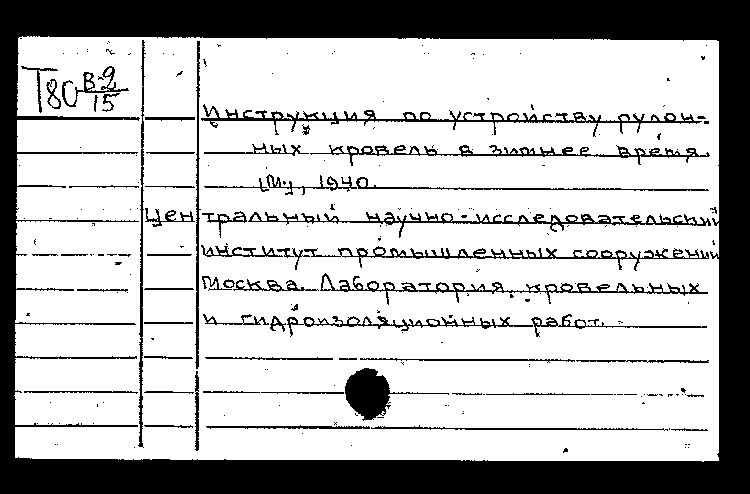 Т80 В-2/15
Инструкция по устройству рулон-
ных кровель в зимнее время.
[М], 1940.
Центральный научно-исследовательский
институт промышленных сооружений
Москва. Лаборатория кровельных
и гидроизоляционных работ.